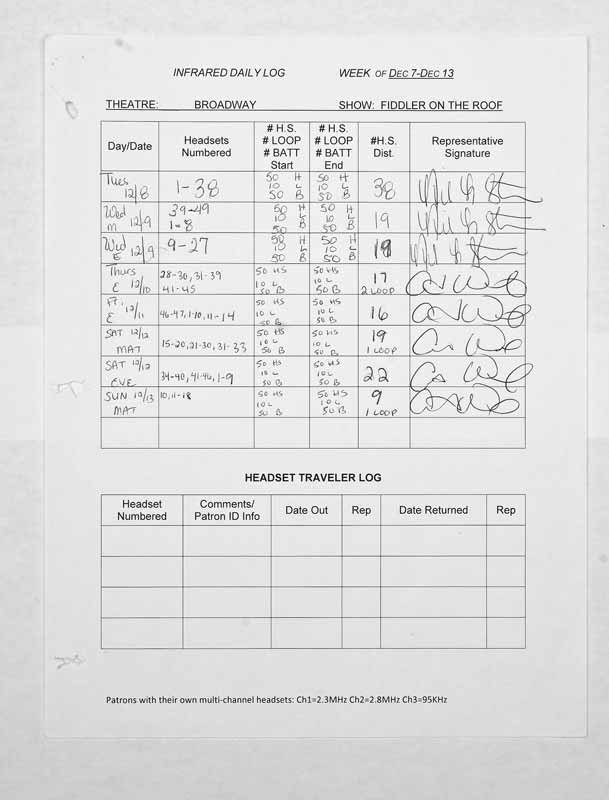 INFRARED DAILY LOG WEEK OF DEC 7-DEC 13
THEATRE: BROADWAY SHOW: FIDDLER ON THE ROOF
Day/Date Headsets Numbered # H.S. # LOOP # BATT Start # H.S. # LOOP # BATT End #H.S. Dist. Representative Signature
Tues 12/8 1-38 50 H 10 L 50 B 50 H 10 L 50 B 38
Wed M 12/9 39-49 1-8 50 H 10 L 50 B 50 H 10 L 50 B 19
Wed E 12/9 9-27 50 H 10 L 50 B 50 H 10 L 50 B 19
Thurs E 12/10 28-30, 31-39 41-45 50 HS 10 L 50 B 50 HS 10 L 50 B 17 2 LOOP
Fri. E 12/11 46-47, 1-10, 11-14 50 HS 10 L 50 B 50 HS 10 L 50 B 16
SAT 12/12 MAT 15-20, 21-30, 31-33 50 HS 10 L 50 B 50 HS 10 L 50 B 19 1 LOOP
SAT 12/12 EVE 34-40, 41-46, 1-9 50 HS 10 L 50 B 50 HS 10 L 50 B 22
SUN 12/13 MAT 10, 11-18 50 HS 10 L 50 B 50 HS 10 L 50 B 9 1 LOOP
HEADSET TRAVELER LOG
Headset Numbered Comments/ Patron ID Info Date Out Rep Date Returned Rep
Patrons with their own multi-channel headsets: Ch1=2.3MHz Ch2=2.8MHz Ch3=95KHz